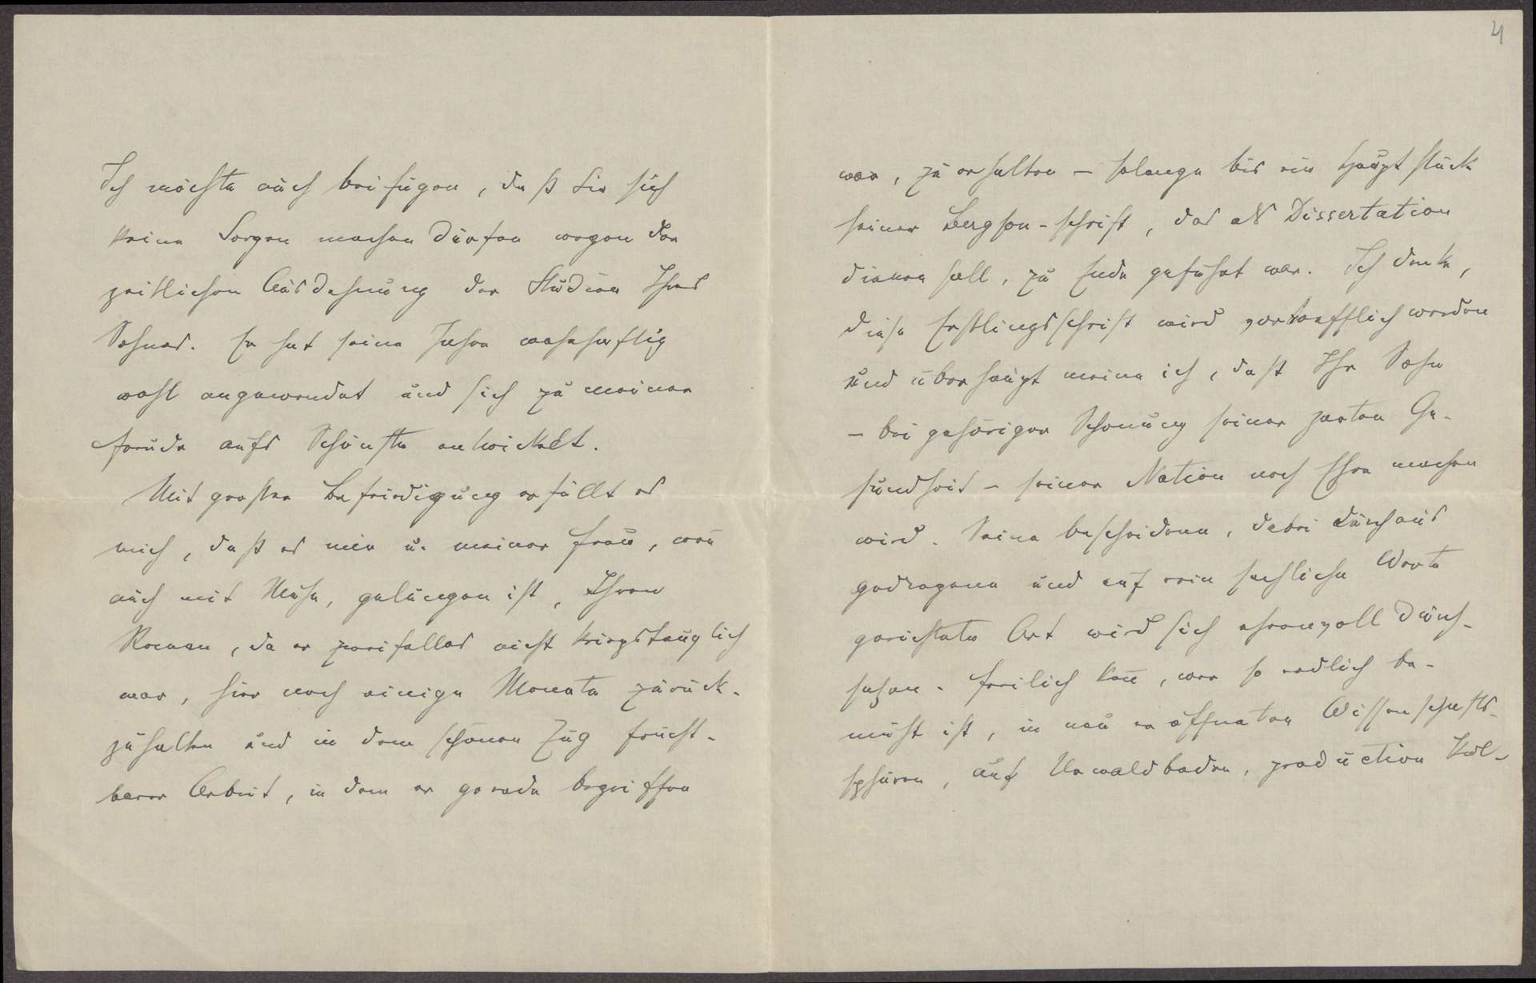 Ich möchte auch beifügen, daß Sie sich
keine Sorgen machen dürfen wegen der
zeitlichen Ausdehnung der Studien Ihres
Sohnes. Er hat seine Jahre wahrhaftig
wohl angewendet und sich zu meiner
Freude aufs Schönste entwickelt.
Mit großer Befriedigung erfüllt es
mich, daß es mir u. meiner Frau, wen̅
auch mit Mühe, gelungen ist, Ihren
Roman, da er zweifellos nicht kriegstauglich
war, hier noch einige Monate zurück-
zuhalten und in dem schönen Zug frucht-
barer Arbeit, in dem er gerade begriffen
4
war, zu erhalten – solange bis ein Hauptstück
seiner Bergson-schrift, das als Dissertation
dienen soll, zu Ende geführt war. Ich denke,
diese Erstlingsschrift wird vortrefflich werden
und überhaupt meine ich, daß Ihr Sohn
– bei gehöriger Schonung seiner zarten Ge-
sundheit – seiner Nation noch Ehre machen
wird. Seine bescheidene, dabei durchaus
gediegene und auf rein sachliche Werte
gerichtete Art wird sich ehrenvoll durch-
setzen. Freilich kan̅, wer so redlich be-
müht ist, in neu eröffneten Wissenschafts-
sphären, auf Urwaldboden, production Kul-